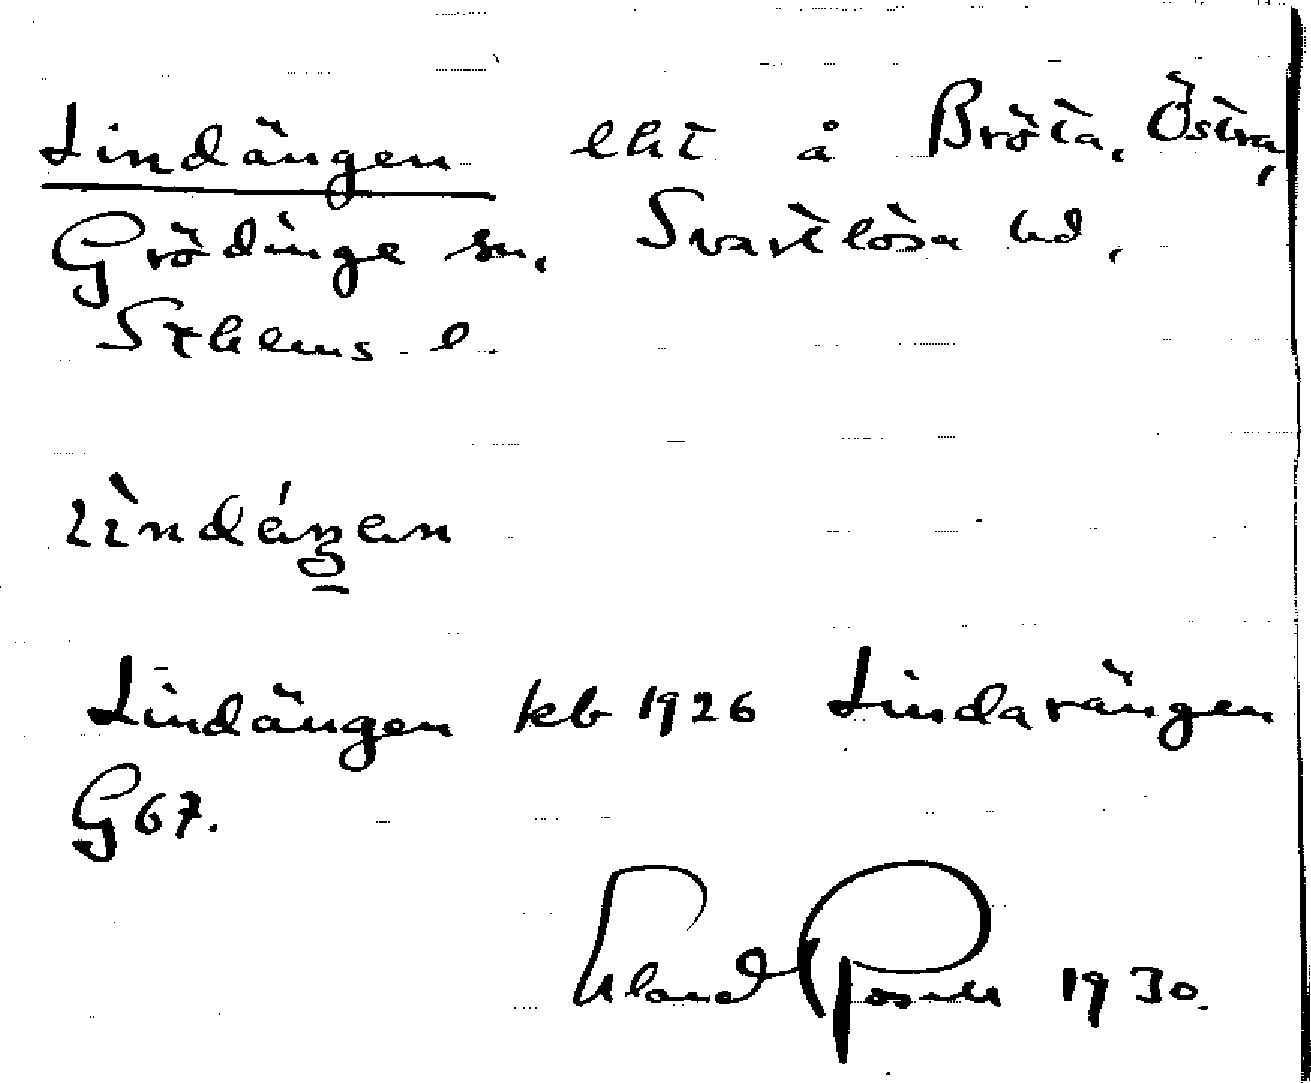 Lindängen lht å Bröta, Östra,
Grödinge sn, Svartlösa hd,
Sthlms l.
Lindängen kb 1926 Lindarängen
G67.
Erland Rosell 1930.